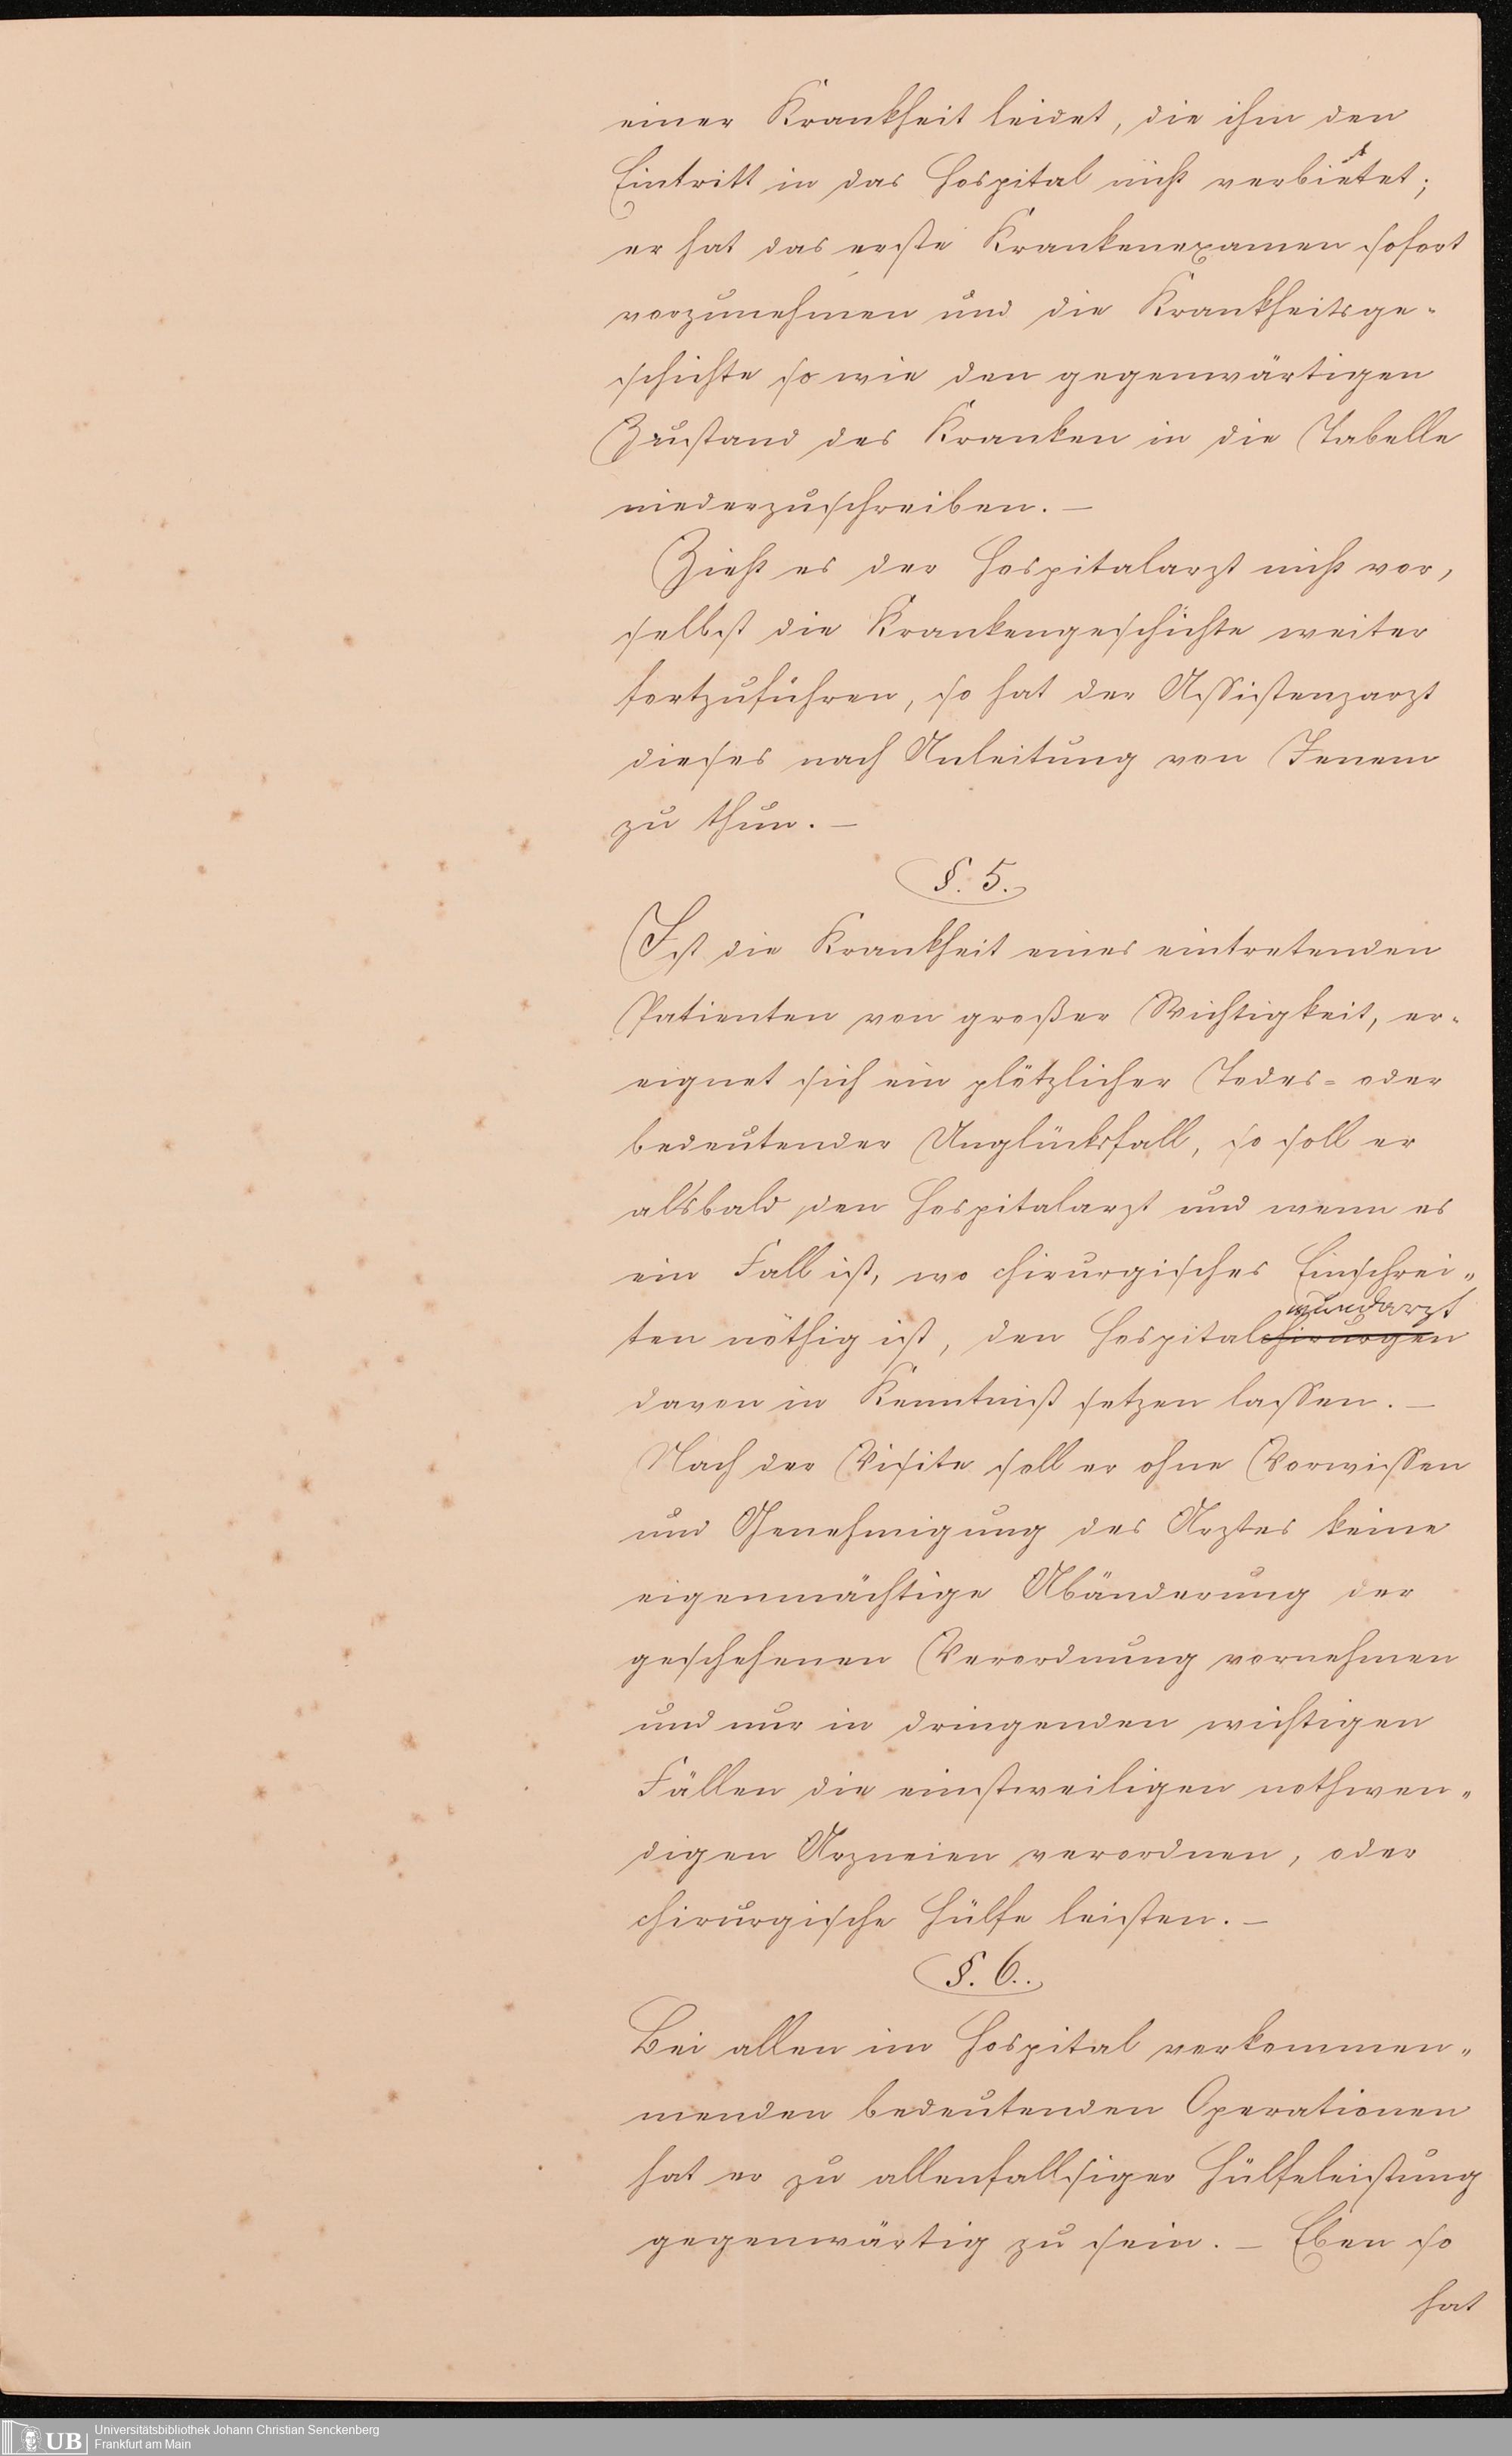 einer Krankheit leidet, die ihm den
Eintritt in das Hospital nicht verbietet;
er hat das erste Krankenexamen sofort
vorzunehmen und die Krankheitsge-
schichte so wie den gegenwärtigen
Zustand des Kranken in die Tabelle
niederzuschreiben. —
Zieht es der Hospitalarzt nicht vor,
selbst die Krankengeschichte weiter
fortzuführen, so hat der Assistenzarzt
dieses nach Anleitung von Jenem
zu thun. —
§. 5.
Ist die Krankheit eines eintretenden
Patienten von großer Wichtigkeit, er-
eignet sich ein plötzlicher Todes- oder
bedeutender Unglücksfall, so soll er
alsbald den Hospitalarzt und wenn es
ein Fall ist, wo chirurgisches Einschrei-
wundarzt
ten nöthig ist, den Hospitalchirurgen
davon in Kenntniß setzen lassen. —
Nach der Visite soll er ohne Vorwissen
und Genehmigung des Arztes keine
eigenmächtige Abänderung der
geschehenen Verordnung vornehmen
und nur in dringenden wichtigen
Fällen die einstweiligen nothwen-
digen Arzneien verordnen, oder
chirurgische Hülfe leisten. —
§. 6.
Bei allen im Hospital vorkommen-
menden bedeutenden Operationen
hat er zu allenfallsiger Hülfeleistung
gegenwärtig zu sein. — Eben so
hat
UB
Universitätsbibliothek Johann Christian Senckenberg
Frankfurt am Main